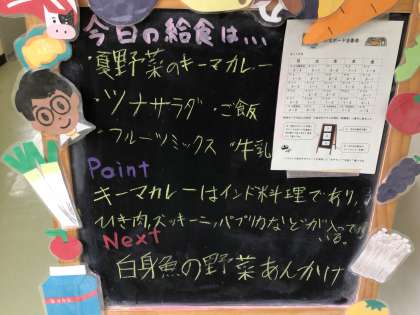 今日の給食は...
・夏野菜のキーマカレー
・ツナサラダ ・ご飯
・フルーツミックス ・牛乳
Point
キーマカレーはインド料理であり、
ひき肉、ズッキーニ、パプリカなどが入って
いる。
Next
白身魚の野菜あんかけ